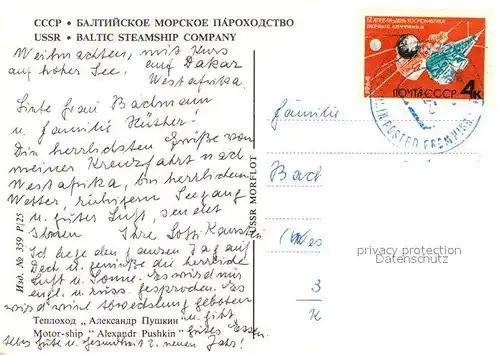 СССР • БАЛТИЙСКОЕ МОРСКОЕ ПАРОХОДСТВО
USSR • BALTIC STEAMSHIP COMPANY
Weihnachten, mit Kurs
auf hoher See. auf Dakar
Westafrika.
Liebe Frau Bachmann
u. Familie Hüther!
Die herrlichsten Grüße von
meiner Kreuzfahrt nach
Westafrika, bei herrlichem
Wetter, ruhigem Seegang
u. guter Luft, sendet
Ihnen Ihre
Ich liege den ganzen Tag auf
Deck u. genieße die herrliche
Luft u. Sonne. Es wird nur
engl. u. russ. gesprochen. Es
wird viel Abwechslung geboten
u. gibt
gutes Essen.
Теплоход „Александр Пушкин"
Motor-ship "Alexandr Pushkin"
alles Gute u. Gesundheit z. neuen Jahr!
Изд. № 359 Р|25
USSR MORFLOT
12 АПРЕЛЯ-ДЕНЬ КОСМОНАВТИКИ
ПЕРВЫЕ СПУТНИКИ
ПОЧТА СССР 4к
POSTED FROM
Familie
Bach
(Wes
3
privacy protection
Datenschutz